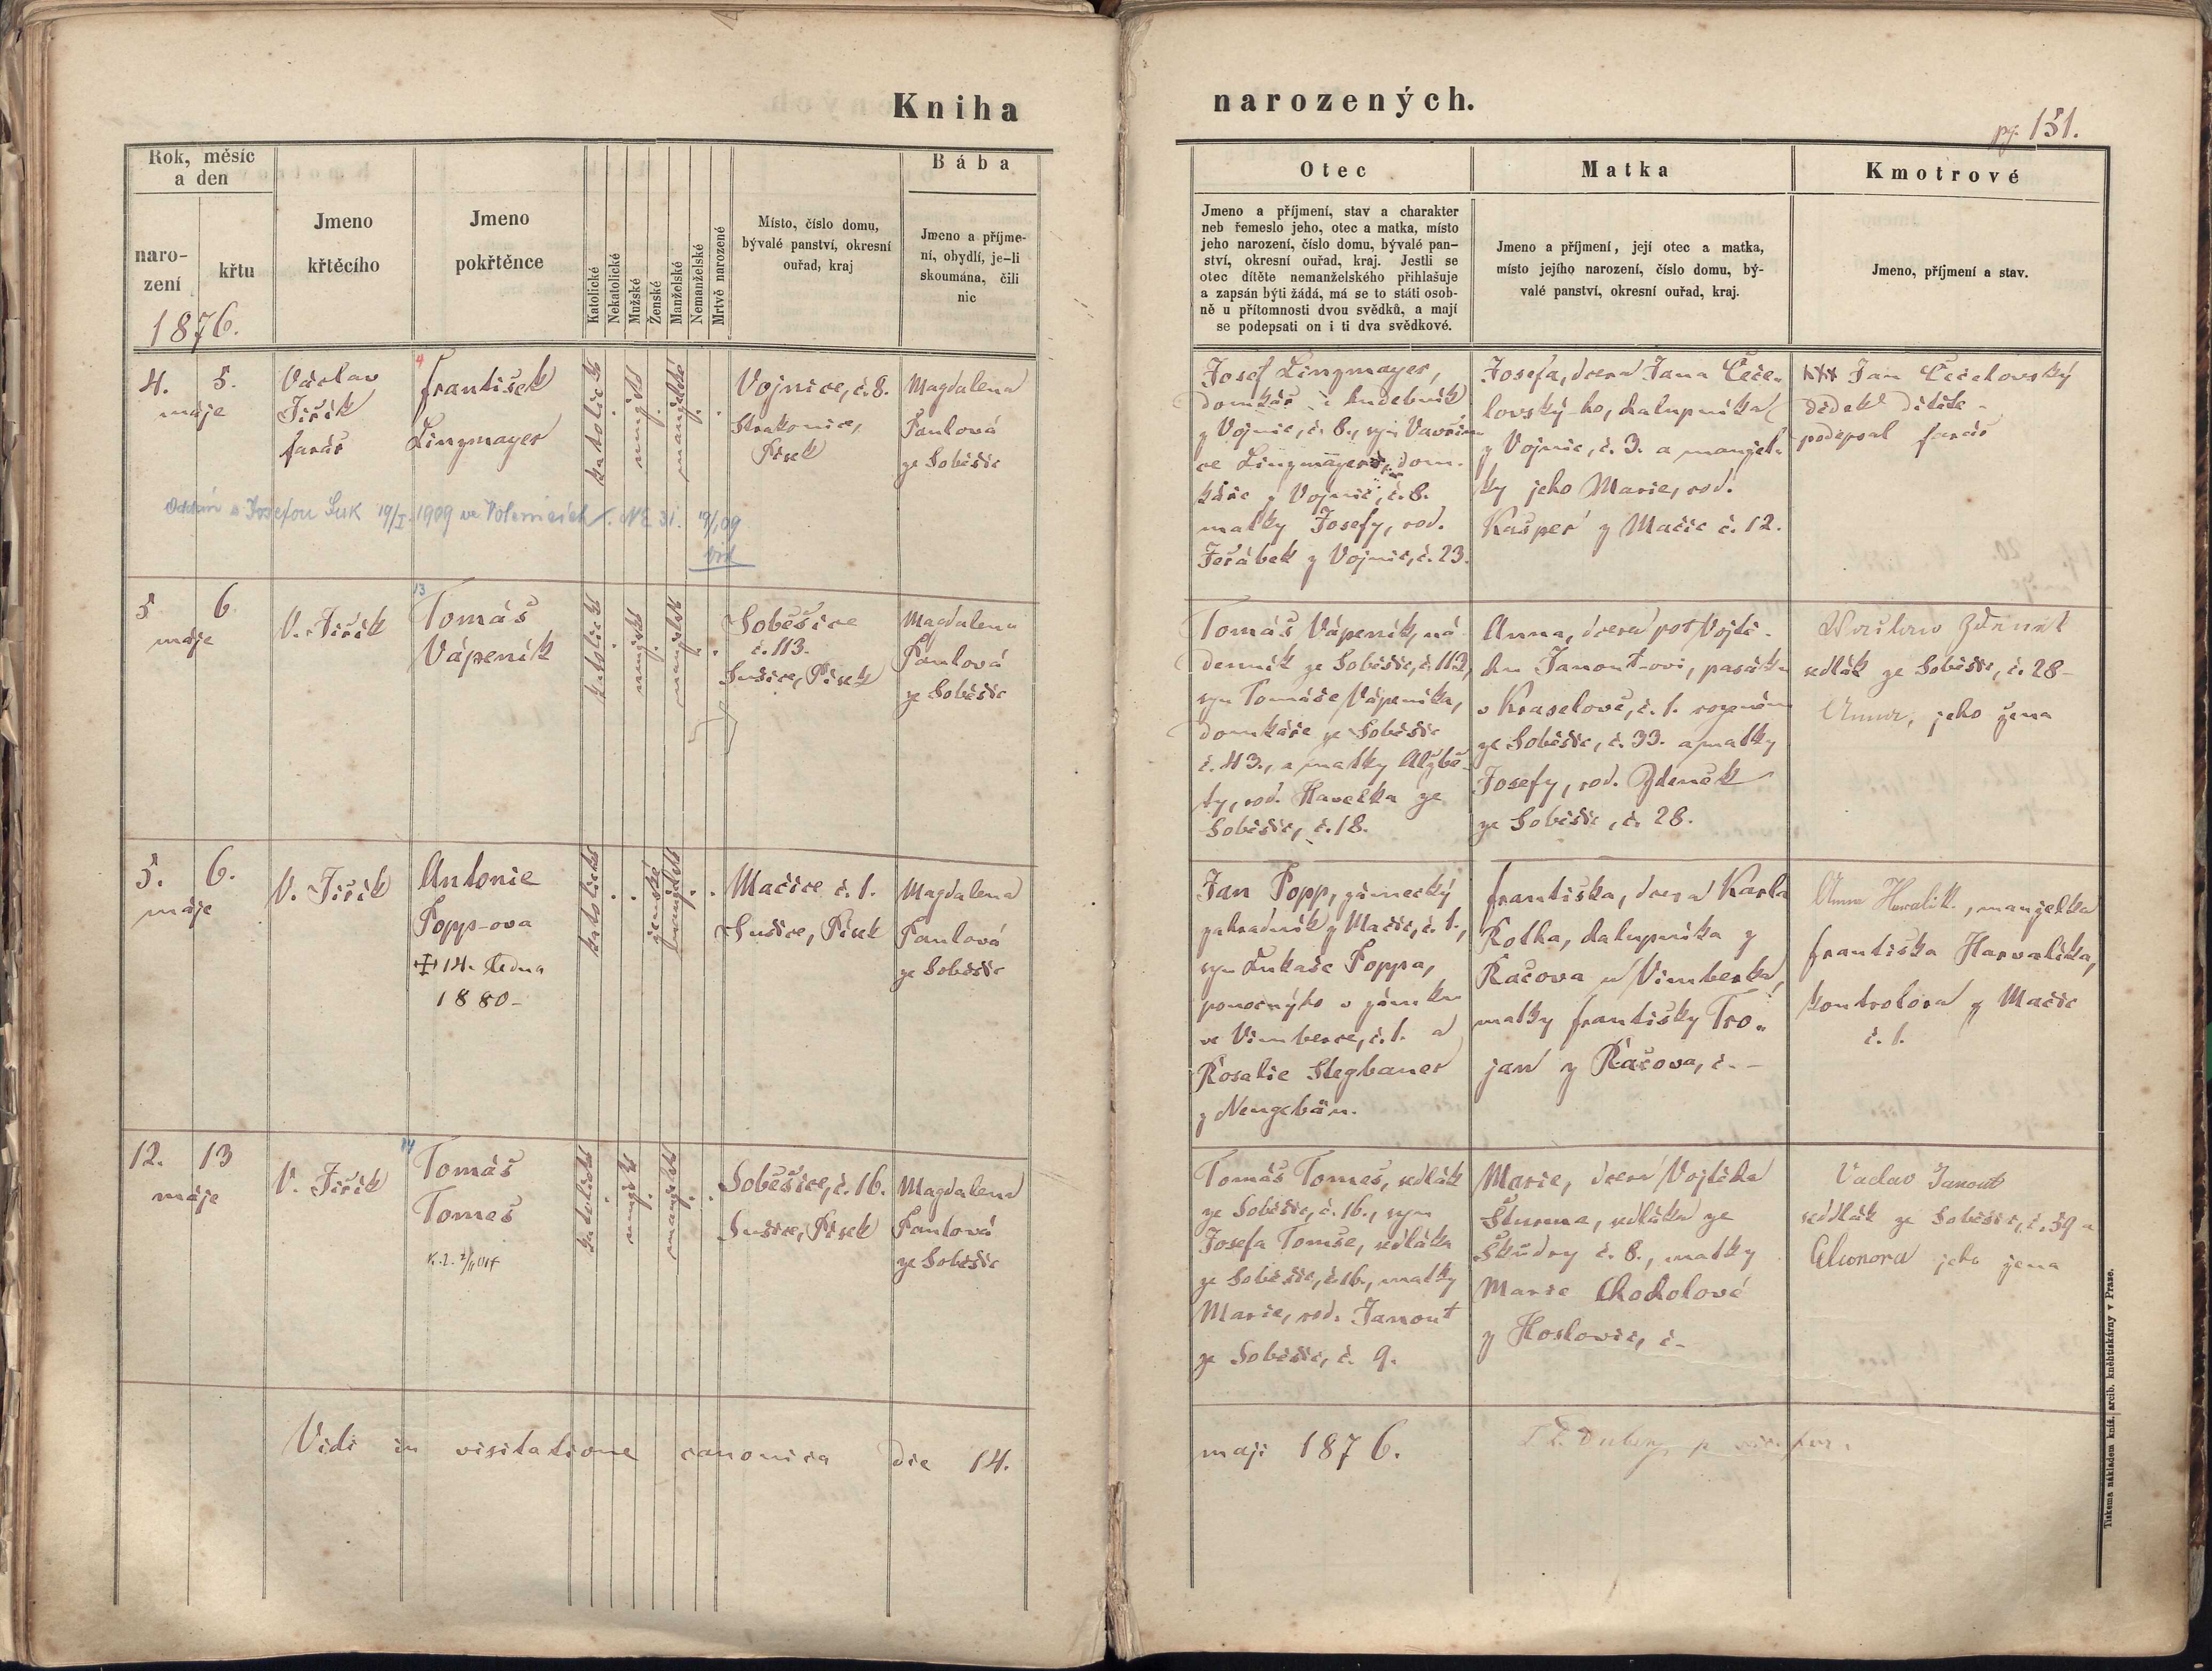 Kniha
narozených.
pg. 131.
Rok, měsíc
a den
naro-
zení
křtu
1876.
Jmeno
křtěcího
Jmeno
pokřtěnce
Katolické
Nekatolické
Mužské
Ženské
Manželské
Nemanželské
Mrtvě narozené
Místo, číslo domu,
bývalé panství, okresní
ouřad, kraj
Bába
Jmeno a příjme-
ní, obydlí, je-li
skoumána, čili
nic
Otec
Jmeno a příjmení, stav a charakter
neb řemeslo jeho, otec a matka, místo
jeho narození, číslo domu, bývalé pan-
ství, okresní ouřad, kraj. Jestli se
otec dítěte nemanželského přihlašuje
a zapsán býti žádá, má se to státi osob-
ně u přítomnosti dvou svědků, a mají
se podepsati on i ti dva svědkové.
Matka
Jmeno a příjmení, její otec a matka,
místo jejího narození, číslo domu, bý-
valé panství, okresní ouřad, kraj.
Kmotrové
Jmeno, příjmení a stav.
4. 5.
máje
Václav
Jiřík
farář
4
František
Linzmayer
katolické
mužské
manželské
Vojnice, č. 8.
Strakonice,
Písek
Magdalena
Paulová
ze Soběšic
Josef Linzmayer,
domkář i hudebník
z Vojnic, č. 8., syn Vavřin-
ce Linzmayera, dom-
káře z Vojnic, č. 8.
matky Josefy, rod.
Jeřábek z Vojnic, č. 23.
Josefa, dcera Jana Čeče-
lovský-ho, chalupníka
z Vojnic, č. 3. a manžel-
ky jeho Marie, rod.
Kašper z Mačic č. 12.
xxx Jan Čečelovský
dědek dítěte -
podepsal farář
Oddán s Josefou Suk 19/I. 1909 ve Volenicích
5. 6.
máje
V. Jiřík
13
Tomáš
Vápeník
katolické
mužské
manželské
Soběšice
č. 113.
Sušice, Písek
Magdalena
Paulová
ze Soběšic
Tomáš Vápeník, ná-
denník ze Soběšic, č. 113,
syn Tomáše Vápeníka,
domkáře ze Soběšic
č. 43., a matky Alžbě-
ty, rod. Havelka ze
Soběšic, č. 18.
Anna, dcera po Vojtě-
chu Janout-ovi, pasáku
v Kraselově, č. 1. rozeném
ze Soběšic, č. 33. a matky
Josefy, rod. Zdeněk
ze Soběšic, č. 28.
sedlák ze Soběšic, č. 28 -
Anna, jeho žena
5. 6.
máje
V. Jiřík
Antonie
Popp-ova
14. ledna
1880 -
katolické
ženské
manželské
Mačice č. 1.
Sušice, Písek
Magdalena
Paulová
ze Soběšic
Jan Popp, zámecký
zahradník z Mačic, č. 1.,
syn Lukáše Poppa,
ponocného v zámku
ve Vimberce, č. 1. a
Rosalie Stegbauer
z Neugebäu.
Františka, dcera Karla
Rotha, chalupníka z
Račova u Vimberka,
matky Františky Tro-
jan z Račova, č. -
Anna Harvalik, manželka
Františka Harvalíka,
kontrolora z Mačic
č. 1.
12. 13
máje
V. Jiřík
14
Tomáš
Tomeš
katolické
mužské
manželské
Soběšice, č. 16.
Sušice, Písek
Magdalena
Paulová
ze Soběšic
Tomáš Tomeš, sedlák
ze Soběšic, č. 16., syn
Josefa Tomše, sedláka
ze Soběšic, č. 16., matky
Marie, rod. Janout
ze Soběšic, č. 9.
Marie, dcera Vojtěcha
Šturma, sedláka ze
Škůdry č. 8., matky
Marie Chocholové
z Hoslovic, č -
Václav Janout
sedlák ze Soběšic, č. 59 a
Eleonora jeho žena
Vidi in visitatione canonica die 14.
maji 1876.
Tiskema nákladem kníž. arcib. kněhtiskárny v Praze.